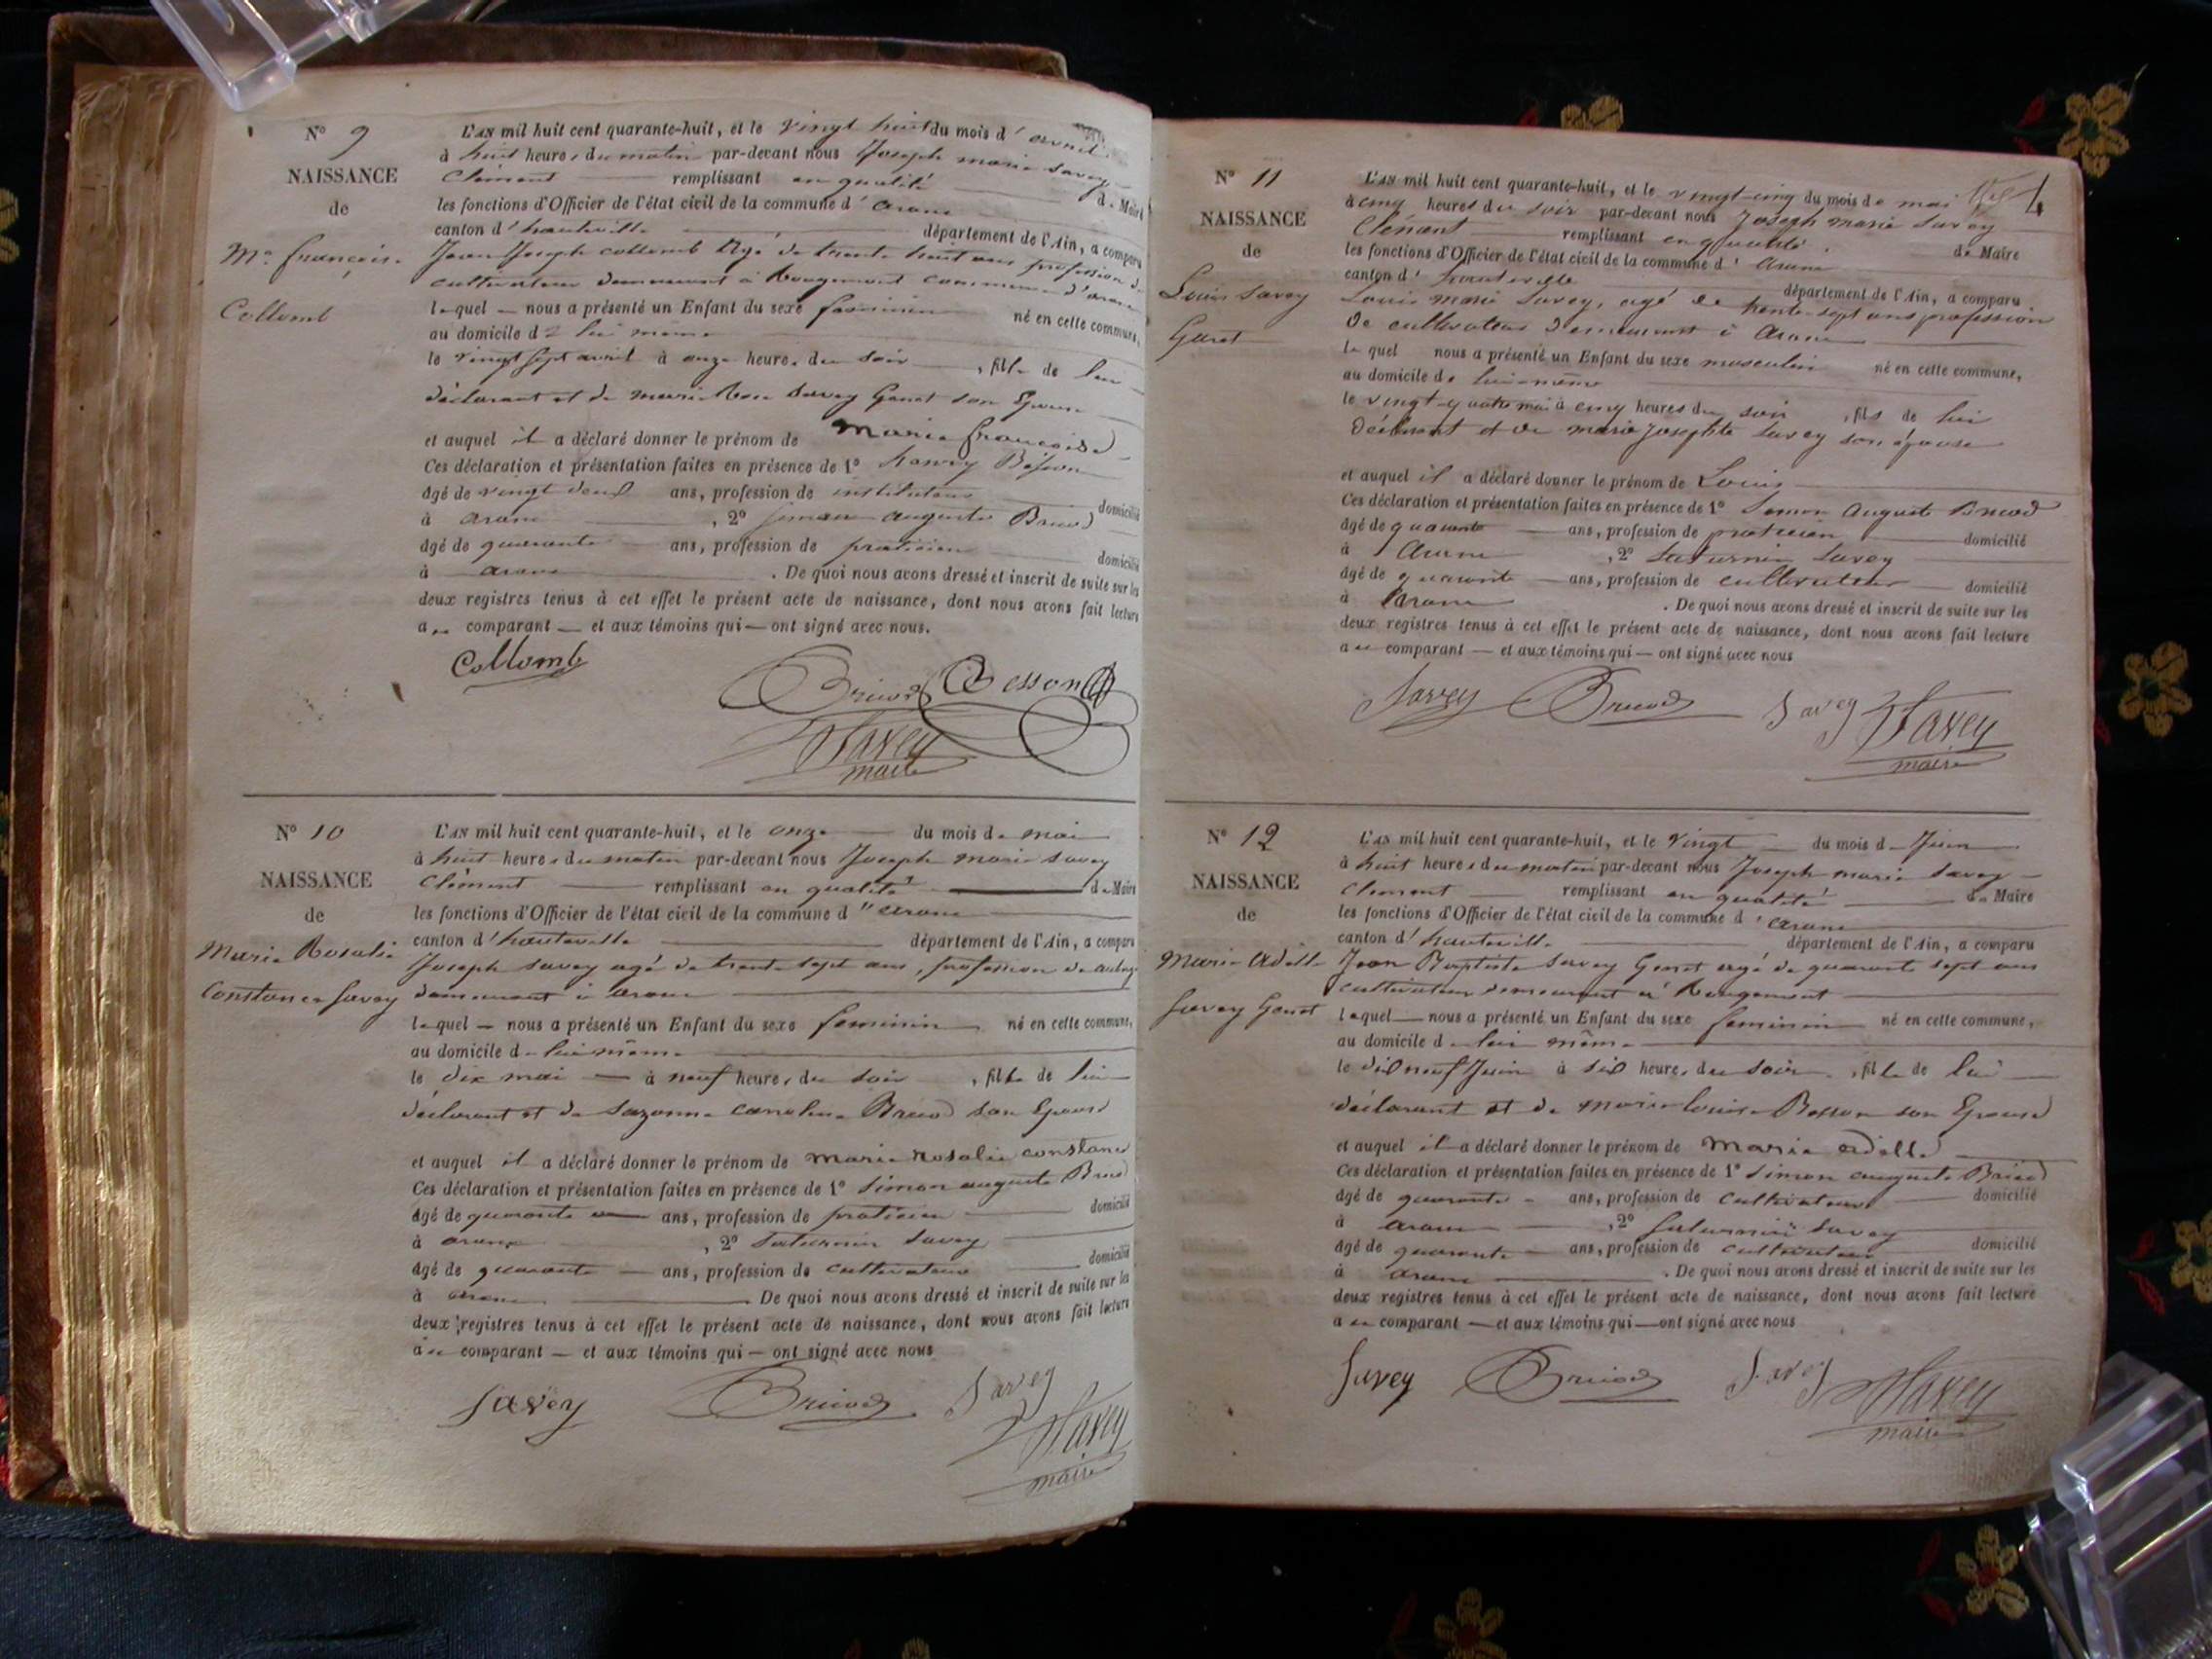 N° 9
NAISSANCE
de
Me françoise
Collomb
L'AN mil huit cent quarante-huit, et le vingt huit du mois d'avril
à huit heures du matin par-devant nous Joseph marie Savey
Clément remplissant en qualité de Maire
les fonctions d'Officier de l'état civil de la commune d'aranc
canton d'hauteville département de l'Ain, a comparu
Jean Joseph collomb âgé de trente huit ans profession de
cultivateur demeurant à Rougemont commune d'aranc
lequel nous a présenté un Enfant du sexe féminin né en cette commune,
au domicile de lui même
le vingt sept avril à onze heures du soir, fille de lui
déclarant et de marie Savey Genet son Epouse
et auquel il a déclaré donner le prénom de marie françoise
Ces déclaration et présentation faites en présence de 1° Besson
âgé de vingt deux ans, profession de instituteur domicilié
à aranc, 2° simon auguste Bricod
âgé de quarante ans, profession de praticien domicilié
à aranc. De quoi nous avons dressé et inscrit de suite sur les
deux registres tenus à cet effet le présent acte de naissance, dont nous avons fait lecture
au comparant et aux témoins qui ont signé avec nous.
Collomb
Bricod Besson
Savey
maire
N° 10
NAISSANCE
de
Marie Rosalie
Constance Savey
L'AN mil huit cent quarante-huit, et le onze du mois de mai
à huit heures du matin par-devant nous Joseph marie Savey
Clément remplissant en qualité de Maire
les fonctions d'Officier de l'état civil de la commune d'aranc
canton d'hauteville département de l'Ain, a comparu
Joseph Savey agé de trente sept ans, profession de
demeurant à aranc
lequel nous a présenté un Enfant du sexe féminin né en cette commune,
au domicile de lui même
le dix mai à neuf heures du soir, fille de lui
déclarant et de Suzanne caroline Bricod son Epouse
et auquel il a déclaré donner le prénom de marie rosalie constance
Ces déclaration et présentation faites en présence de 1° simon auguste Bricod
âgé de quarante ans, profession de praticien domicilié
à aranc, 2° Saturnin Savey
âgé de quarante ans, profession de cultivateur domicilié
à aranc. De quoi nous avons dressé et inscrit de suite sur les
deux registres tenus à cet effet le présent acte de naissance, dont nous avons fait lecture
au comparant et aux témoins qui ont signé avec nous
Savey Bricod Savey
Savey
maire
N° 11
NAISSANCE
de
Louis Savey
Genet
L'AN mil huit cent quarante-huit, et le vingt-cinq du mois de mai
à cinq heures du soir par-devant nous Joseph marie Savey
Clément remplissant en qualité de Maire
les fonctions d'Officier de l'état civil de la commune d'Aranc
canton d'hauteville département de l'Ain, a comparu
Louis marie Savey, agé de trente-sept ans profession
De cultivateur Demeurant à Aranc
lequel nous a présenté un Enfant du sexe masculin né en cette commune,
au domicile de lui-même
le vingt-quatre mai à cinq heures du soir, fils de lui
Déclarant et de marie Josephte Savey son épouse
et auquel il a déclaré donner le prénom de Louis
Ces déclaration et présentation faites en présence de 1° Simon Auguste Bricod
âgé de quarante ans, profession de praticien domicilié
à Aranc, 2° Saturnin Savey
âgé de quarante ans, profession de cultivateur domicilié
à Aranc. De quoi nous avons dressé et inscrit de suite sur les
deux registres tenus à cet effet le présent acte de naissance, dont nous avons fait lecture
au comparant et aux témoins qui ont signé avec nous
Savey Bricod Savey Savey
maire
N° 12
NAISSANCE
de
Marie Adelle
Savey Genet
L'AN mil huit cent quarante-huit, et le vingt du mois de Juin
à huit heures du matin par-devant nous Joseph marie Savey
Clément remplissant en qualité de Maire
les fonctions d'Officier de l'état civil de la commune d'aranc
canton d'hauteville département de l'Ain, a comparu
Jean Baptiste Savey Genet agé de quarante sept ans
cultivateur demeurant à Rougemont
lequel nous a présenté un Enfant du sexe féminin né en cette commune,
au domicile de lui même
le dix neuf Juin à six heures du soir, fille de lui
déclarant et de marie louise Besson son Epouse
et auquel il a déclaré donner le prénom de marie adelle
Ces déclaration et présentation faites en présence de 1° simon auguste Bricod
âgé de quarante ans, profession de cultivateur domicilié
à aranc, 2° saturnin Savey
âgé de quarante ans, profession de cultivateur domicilié
à aranc. De quoi nous avons dressé et inscrit de suite sur les
deux registres tenus à cet effet le présent acte de naissance, dont nous avons fait lecture
au comparant et aux témoins qui ont signé avec nous
Savey Bricod Savey Savey
maire